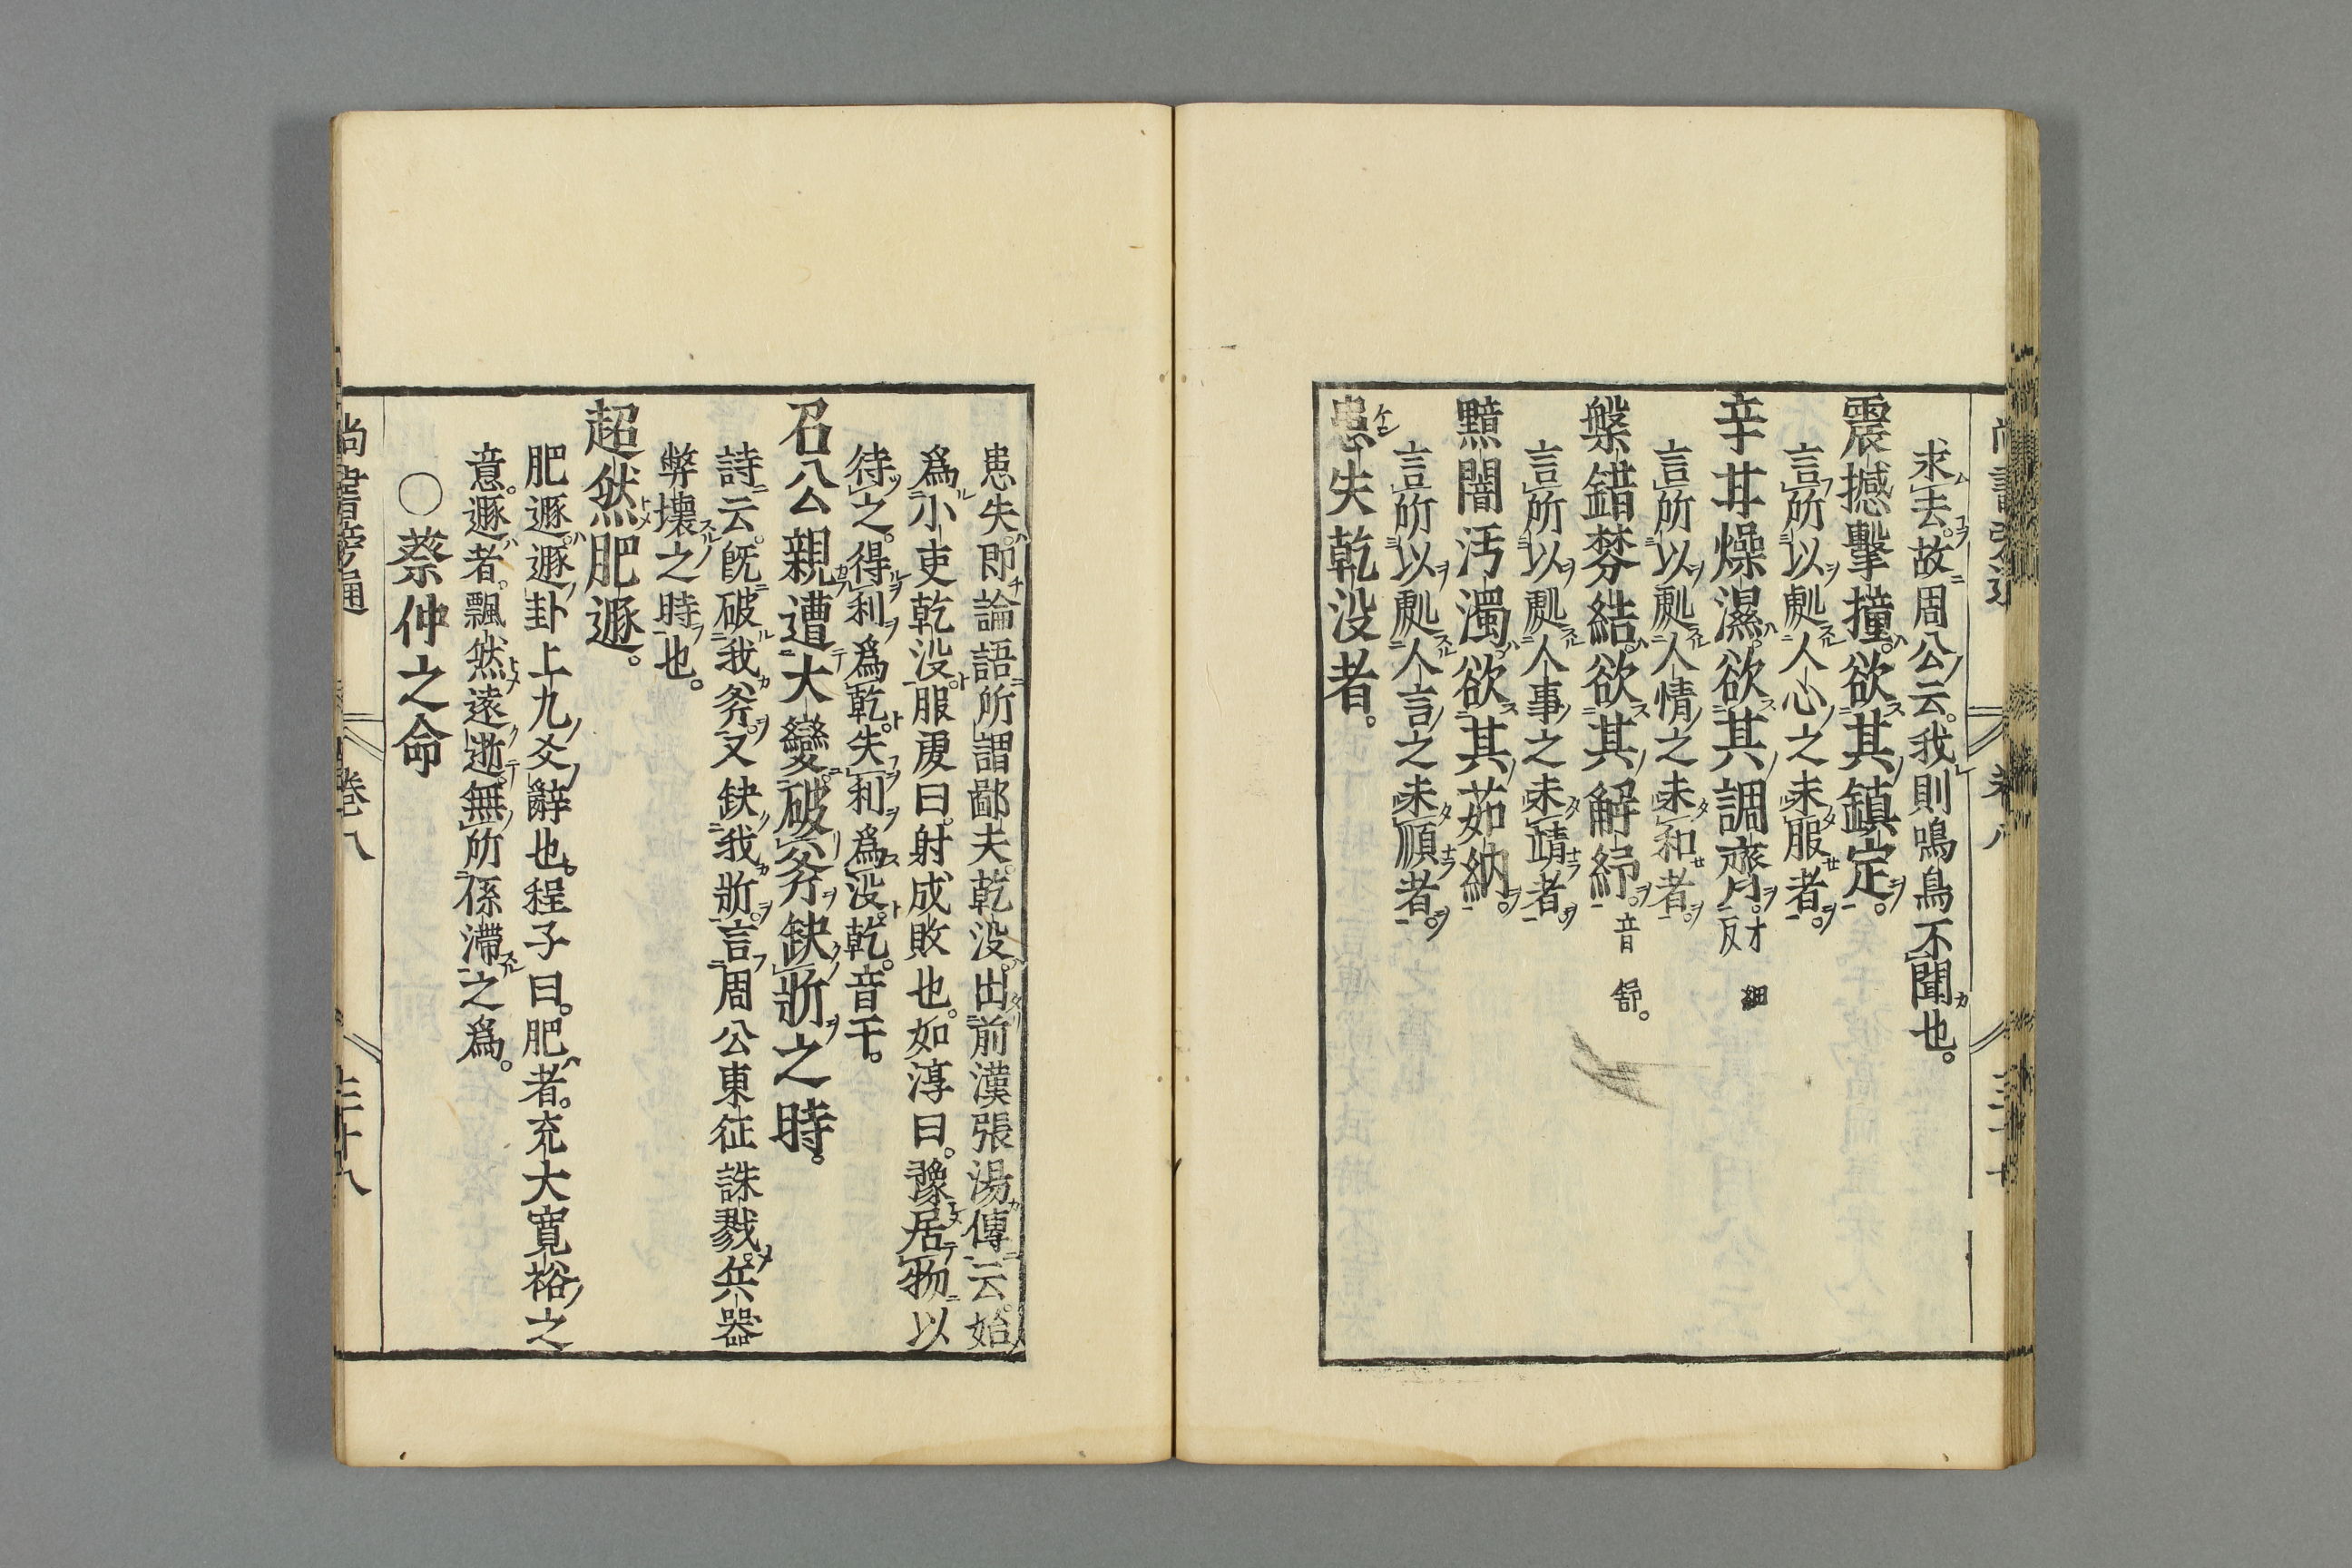 求去。故周公云。我則鳴鳥不聞也。
震撼擊撞。欲其鎮定。
言所以處人心之未服者。
辛甘燥濕。欲其調齊。才細反
言所以處人情之未和者。
槃錯棼結。欲其解紓。音舒。
言所以處人事之未靖者。
黯闇汚濁。欲其茹納。
言所以處人言之未順者。
患失乾没者。
患失。即論語所謂鄙夫。乾没。出前漢張湯傳云。始
爲小吏乾没。服虔曰。射成敗也。如淳曰。豫居物以
待之。得利爲乾。失利爲没。乾。音干。
召公親遭大變。破斧缺斨之時。
詩云。既破我斧。又缺我斨。言周公東征誅戮。兵器
弊壞之時也。
超然肥遯。
肥遯。遯卦上九爻辭也。程子曰。肥者。充大寛裕之
意。遯者。飄然遠逝。無所係滯之爲。
○蔡仲之命
尚書旁通 卷八 三十八